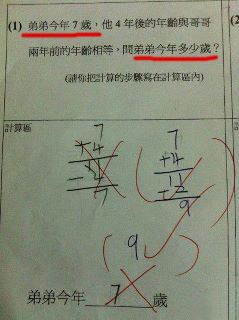 (1) 弟弟今年 7 歲，他 4 年後的年齡與哥哥
兩年前的年齡相等，問弟弟今年多少歲？
(請你把計算的步驟寫在計算區內)
計算區
7 7
+4 +4
7 9
(9)
弟弟今年 7 歲